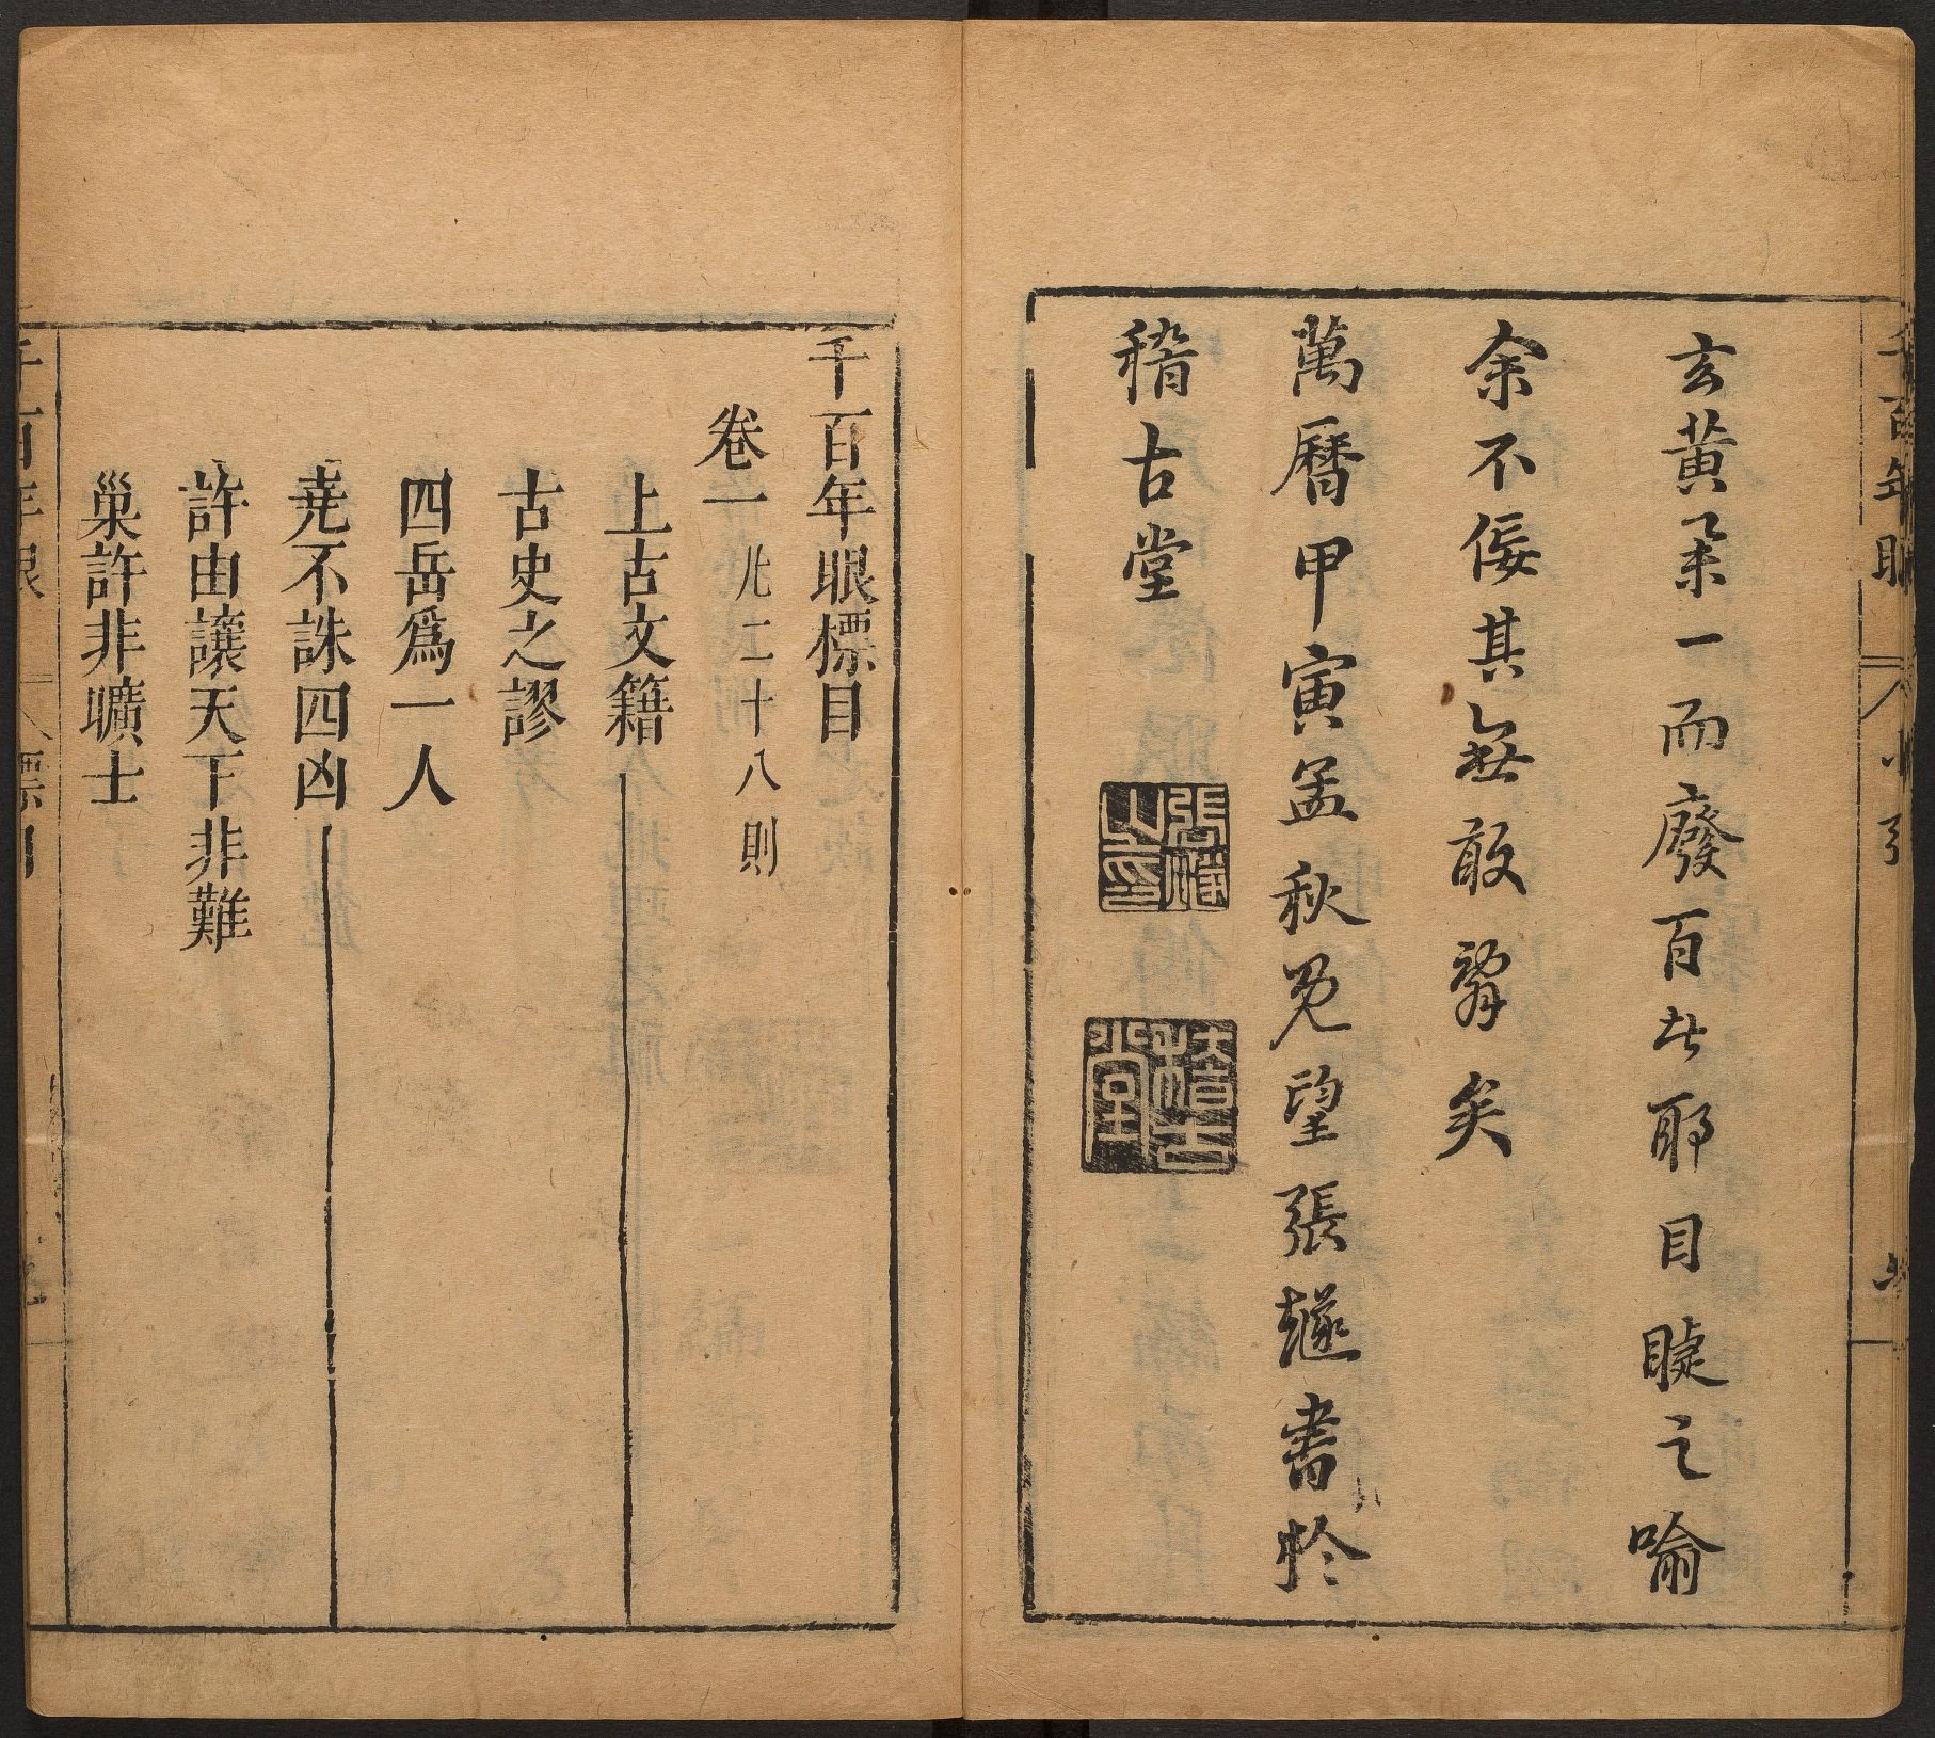 玄黃采一而廢百者耶目睫之喻
余不佞其無敢辭矣
萬曆甲寅孟秋旣望張燧書於
稽古堂
張燧之印
稽古堂
千百年眼標目
卷一 凡二十八則
上古文籍
古史之謬
四岳爲一人
堯不誅四凶
許由讓天下非難
巢許非曠士
千百年眼